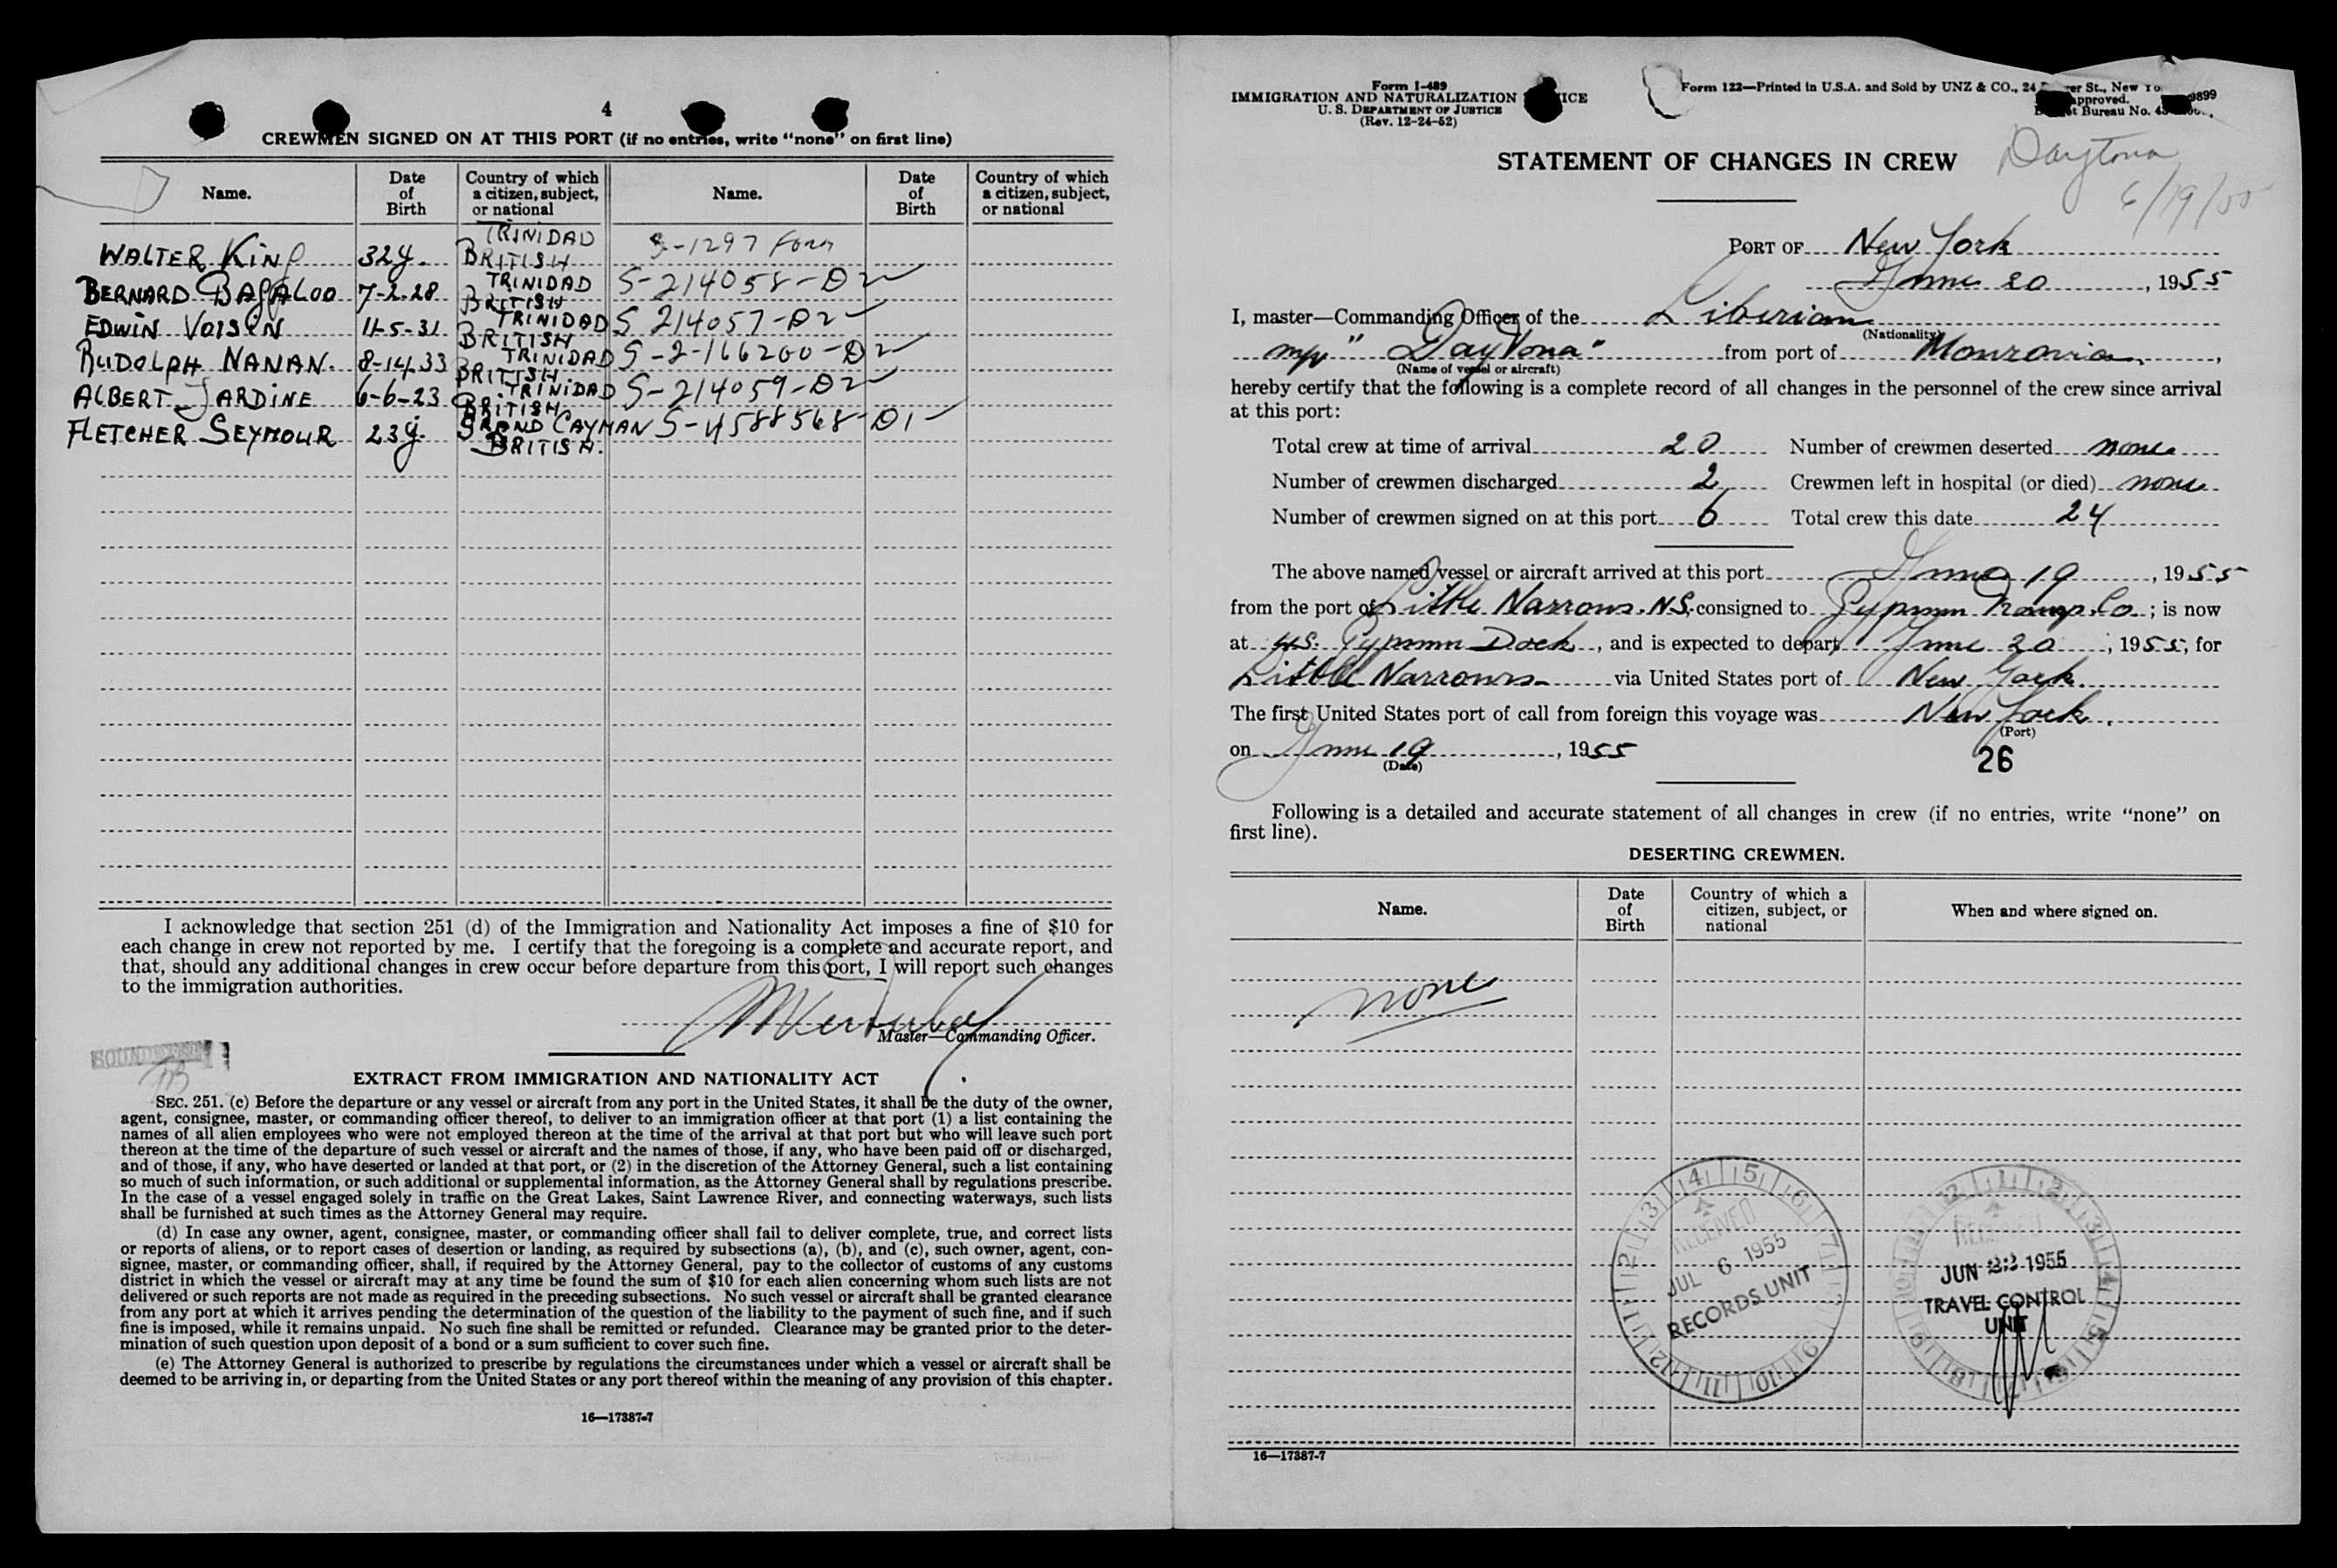 4
CREWMEN SIGNED ON AT THIS PORT (if no entries, write "none" on first line)
Name. Date of Birth Country of which a citizen, subject, or national Name. Date of Birth Country of which a citizen, subject, or national
WALTER KING 32y. TRINIDAD BRITISH -1297 Form
BERNARD BAGALOO 7-2-28 TRINIDAD BRITISH S-214058-D2
EDWIN VOISIN 11-5-31 TRINIDAD BRITISH S 214057-D2
RUDOLPH NANAN. 8-14-33 TRINIDAD BRITISH S-2-166200-D2
ALBERT JARDINE 6-6-23 TRINIDAD BRITISH S-214059-D2
FLETCHER SEYMOUR 23y. GRAND CAYMAN BRITISH. S-4588568-D1
I acknowledge that section 251 (d) of the Immigration and Nationality Act imposes a fine of $10 for
each change in crew not reported by me. I certify that the foregoing is a complete and accurate report, and
that, should any additional changes in crew occur before departure from this port, I will report such changes
to the immigration authorities.
Master—Commanding Officer.
EXTRACT FROM IMMIGRATION AND NATIONALITY ACT
SEC. 251. (c) Before the departure or any vessel or aircraft from any port in the United States, it shall be the duty of the owner,
agent, consignee, master, or commanding officer thereof, to deliver to an immigration officer at that port (1) a list containing the
names of all alien employees who were not employed thereon at the time of the arrival at that port but who will leave such port
thereon at the time of the departure of such vessel or aircraft and the names of those, if any, who have been paid off or discharged,
and of those, if any, who have deserted or landed at that port, or (2) in the discretion of the Attorney General, such a list containing
so much of such information, or such additional or supplemental information, as the Attorney General shall by regulations prescribe.
In the case of a vessel engaged solely in traffic on the Great Lakes, Saint Lawrence River, and connecting waterways, such lists
shall be furnished at such times as the Attorney General may require.
(d) In case any owner, agent, consignee, master, or commanding officer shall fail to deliver complete, true, and correct lists
or reports of aliens, or to report cases of desertion or landing, as required by subsections (a), (b), and (c), such owner, agent, con-
signee, master, or commanding officer, shall, if required by the Attorney General, pay to the collector of customs of any customs
district in which the vessel or aircraft may at any time be found the sum of $10 for each alien concerning whom such lists are not
delivered or such reports are not made as required in the preceding subsections. No such vessel or aircraft shall be granted clearance
from any port at which it arrives pending the determination of the question of the liability to the payment of such fine, and if such
fine is imposed, while it remains unpaid. No such fine shall be remitted or refunded. Clearance may be granted prior to the deter-
mination of such question upon deposit of a bond or a sum sufficient to cover such fine.
(e) The Attorney General is authorized to prescribe by regulations the circumstances under which a vessel or aircraft shall be
deemed to be arriving in, or departing from the United States or any port thereof within the meaning of any provision of this chapter.
16—17387-7
Form I-489
IMMIGRATION AND NATURALIZATION ICE
U. S. DEPARTMENT OF JUSTICE
(Rev. 12-24-52)
Form 122—Printed in U.S.A. and Sold by UNZ & CO., 24 St., New
approved.
Bureau No.
STATEMENT OF CHANGES IN CREW
Daytona
6/19/55
PORT OF New York
June 20, 1955
I, master—Commanding Officer of the Liberian
(Nationality)
m/v "Daytona" from port of Monrovia,
(Name of vessel or aircraft)
hereby certify that the following is a complete record of all changes in the personnel of the crew since arrival
at this port:
Total crew at time of arrival 20 Number of crewmen deserted none
Number of crewmen discharged 2 Crewmen left in hospital (or died) none
Number of crewmen signed on at this port 6 Total crew this date 24
The above named vessel or aircraft arrived at this port June 19, 1955
from the port of Little Narrows. N.S, consigned to Gypsum Transp. Co.; is now
at U.S. Gypsum Dock, and is expected to depart June 20, 1955, for
Little Narrows via United States port of New York.
The first United States port of call from foreign this voyage was New York.
(Port)
on June 19, 1955
(Date)
26
Following is a detailed and accurate statement of all changes in crew (if no entries, write "none" on
first line).
DESERTING CREWMEN.
Name. Date of Birth Country of which a citizen, subject, or national When and where signed on.
none
RECEIVED
JUL 6 1955
RECORDS UNIT
RECEIVED
JUN 22 1955
TRAVEL CONTROL
UNIT
16—17387-7